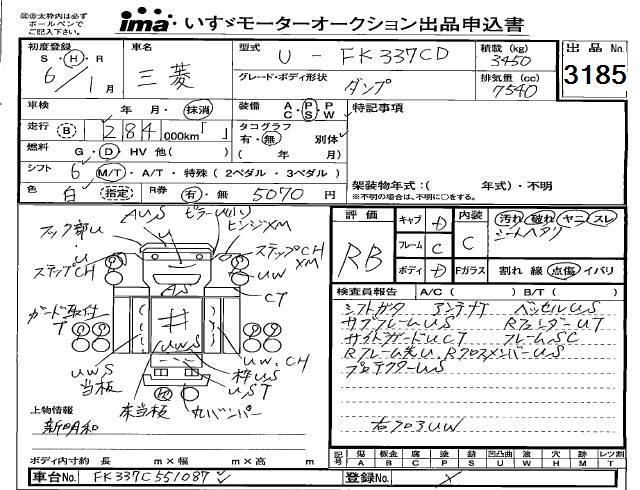 ㊟赤太枠内は必ず
ボールペンで
ご記入下さい。
ima・いすゞモーターオークション出品申込書
初度登録
S・H・R
6/1月
車名
三菱
型式
U - FK337CD
グレード・ボディ形状
ダンプ
積載 (kg)
3450
排気量 (cc)
7540
出品No.
3185
車検
年 月・抹消
装備
A C・P S・P W
特記事項
走行
B
284,000km「 」
タコグラフ
有・無 別体
( 年 月)
燃料
G・D・HV 他( )
シフト
6 M/T・A/T・特殊(2ペダル・3ペダル)
架装物年式:( 年式)・不明
※不明の場合は、不明に○をする。
色
白 指定 R券 有・無 5070 円
フック部U
AUS
ピラーU(ハ)
ヒンジXM
ステップCH
ステップCH
XM
UW
AS
CT
ガード取付
T
井
UWS
UWS
当板
UW.CH
枠US
UST
未当板
丸バンパー
上物情報
新明和
ボディ内寸約 長 m×幅 m×高 m
評価
RB
キャブ
D
フレーム
C
ボディ
D
内装
C
Fガラス
汚れ 破れ ヤニ スレ
シートヘタリ
割れ 線 点傷 イバリ
検査員報告 A/C( ) B/T( )
シフトガタ アンテナT ベッセルUS
サブフレームUS RフェンダーUT
サイドガードUCT フレームSC
Rフレーム先U.RクロスメンバーUS
プロテクターUS
右クロスUW
記号 傷A 板金B 腐C 塗P 錆S 凹凸曲U 波W 穴H 跡M レツ割T
車台No. FK337C551087
登録No.